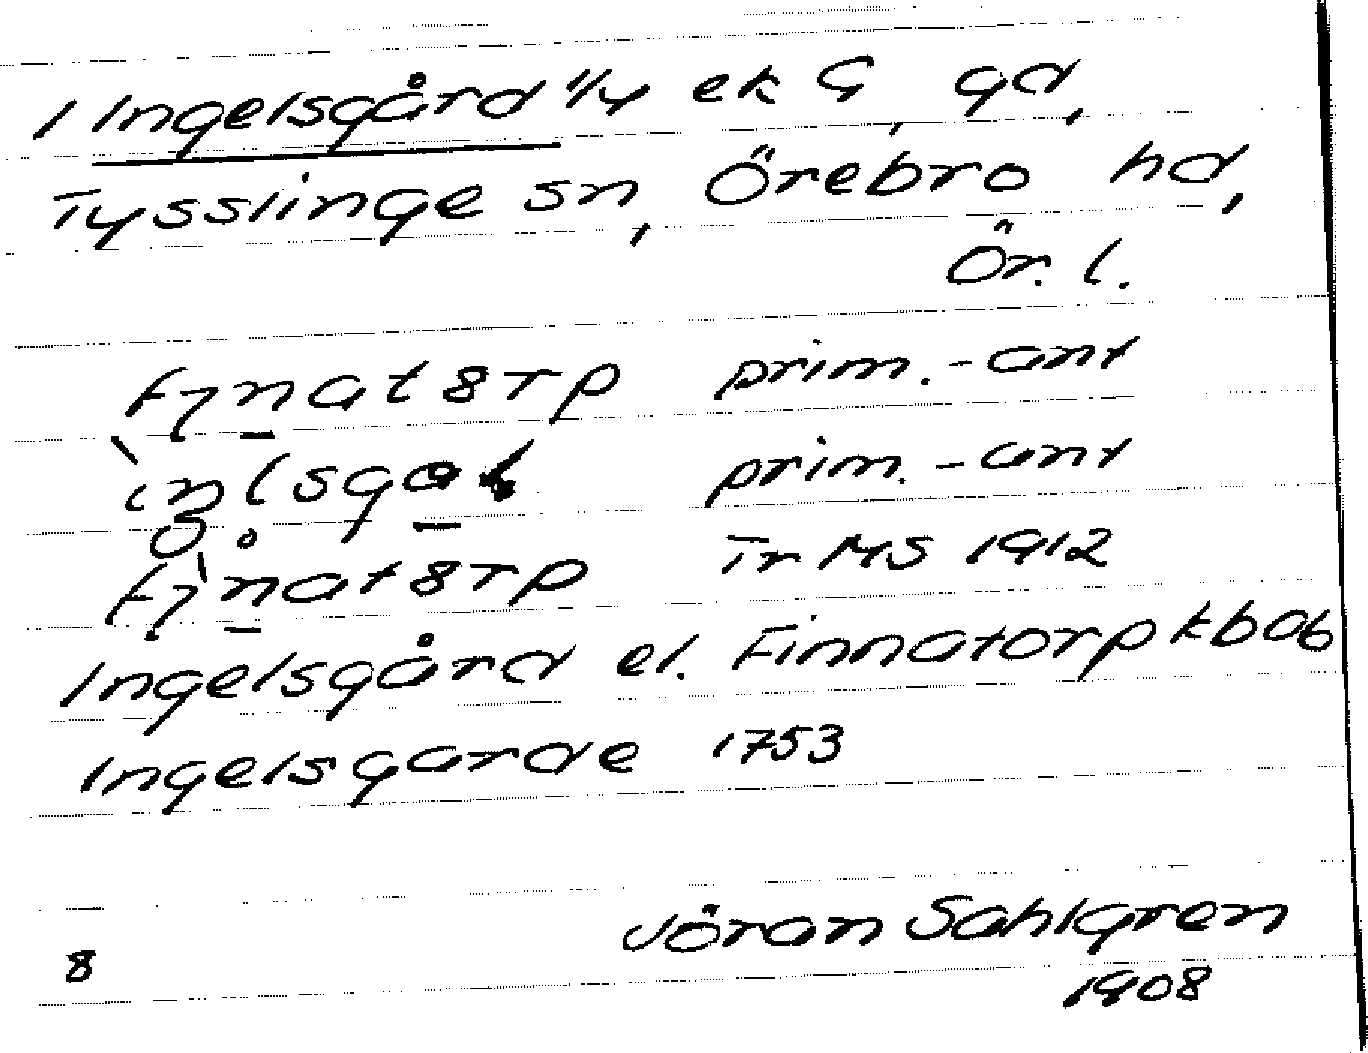 1 Ingelsgård 1/4 ek G, gd,
Tysslinge sn, Örebro hd,
Ör. l.
prim.-ant
prim.-ant
Tr MS 1912
Ingelsgård el. Finnatorp kbob
Ingelsgarde 1753
Jöran Sahlgren
8
1908